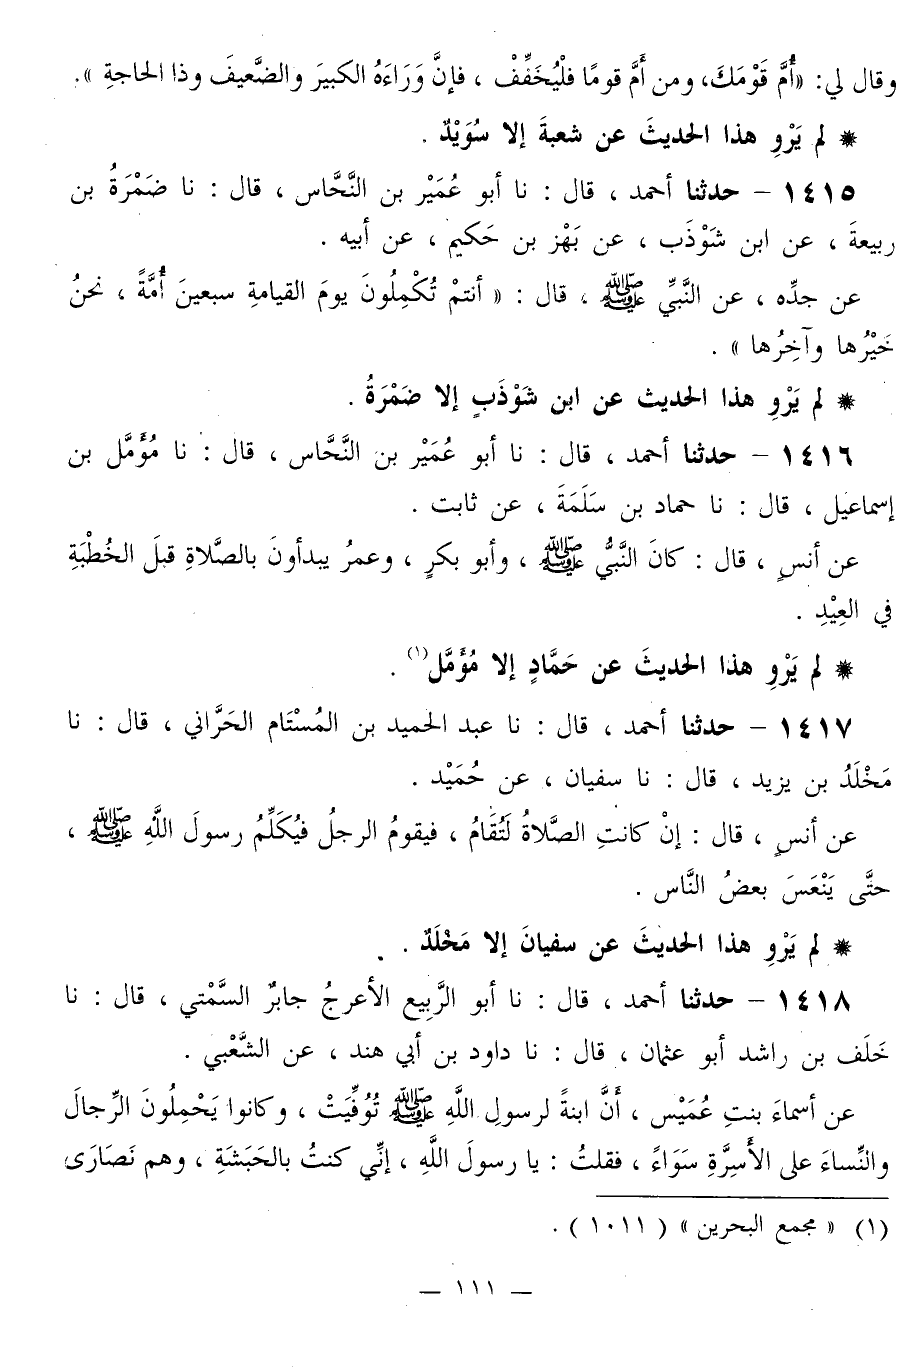 وقال لي: «أُمَّ قَوْمَكَ، ومن أَمَّ قومًا فلْيُخَفِّفْ ، فإنَّ وَرَاءَهُ الكبيرَ والضَّعيفَ وذا الحاجةِ ».
* لم يَرْوِ هذا الحديثَ عن شعبةَ إلا سُوَيْدٌ .
١٤١٥ - حدثنا أحمد ، قال : نا أبو عُمَيْر بن النَّحَّاس ، قال : نا ضَمْرَةُ بن
ربيعةَ ، عن ابن شَوْذَب ، عن بَهْز بن حَكيم ، عن أبيه .
عن جدِّه ، عن النَّبيِّ ﷺ ، قال : « أنتمْ تُكْمِلُونَ يومَ القيامةِ سبعينَ أُمَّةً ، نحنُ
خَيْرُها وآخِرُها » .
* لم يَرْوِ هذا الحديث عن ابن شَوْذَبٍ إلا ضَمْرَةُ .
١٤١٦ - حدثنا أحمد ، قال : نا أبو عُمَيْر بن النَّحَّاس ، قال : نا مُؤَمَّل بن
إسماعيل ، قال : نا حماد بن سَلَمَةَ ، عن ثابت .
عن أنسٍ ، قال : كانَ النَّبيُّ ﷺ ، وأبو بكرٍ ، وعمرُ يبدأونَ بالصَّلاةِ قبلَ الخُطْبَةِ
في العِيْدِ .
* لم يَرْوِ هذا الحديثَ عن حَمَّادٍ إلا مُؤَمَّل(١) .
١٤١٧ - حدثنا أحمد ، قال : نا عبد الحميد بن المُسْتَام الحَرَّاني ، قال : نا
مَخْلَدُ بن يزيد ، قال : نا سفيان ، عن حُمَيْد .
عن أنسٍ ، قال : إنْ كانتِ الصَّلاةُ لَتُقَامُ ، فيقومُ الرجلُ فيُكَلِّمُ رسولَ اللَّهِ ﷺ ،
حتَّى يَنْعَسَ بعضُ النَّاس .
* لم يَرْوِ هذا الحديثَ عن سفيانَ إلا مَخْلَدٌ .
١٤١٨ - حدثنا أحمد ، قال : نا أبو الرَّبيع الأعرجُ جابرٌ السَّمْتي ، قال : نا
خَلَف بن راشد أبو عثمان ، قال : نا داود بن أبي هند ، عن الشَّعْبي .
عن أسماءَ بنتِ عُمَيْس ، أَنَّ ابنةً لرسولِ اللَّهِ ﷺ تُوُفِّيَتْ ، وكانوا يَحْمِلُونَ الرِّجالَ
والنِّساءَ على الأَسِرَّةِ سَوَاءً ، فقلتُ : يا رسولَ اللَّهِ ، إنِّي كنتُ بالحَبَشَةِ ، وهم نَصَارَى
(١) « مجمع البحرين » ( ١٠١١ ) .
— ١١١ —